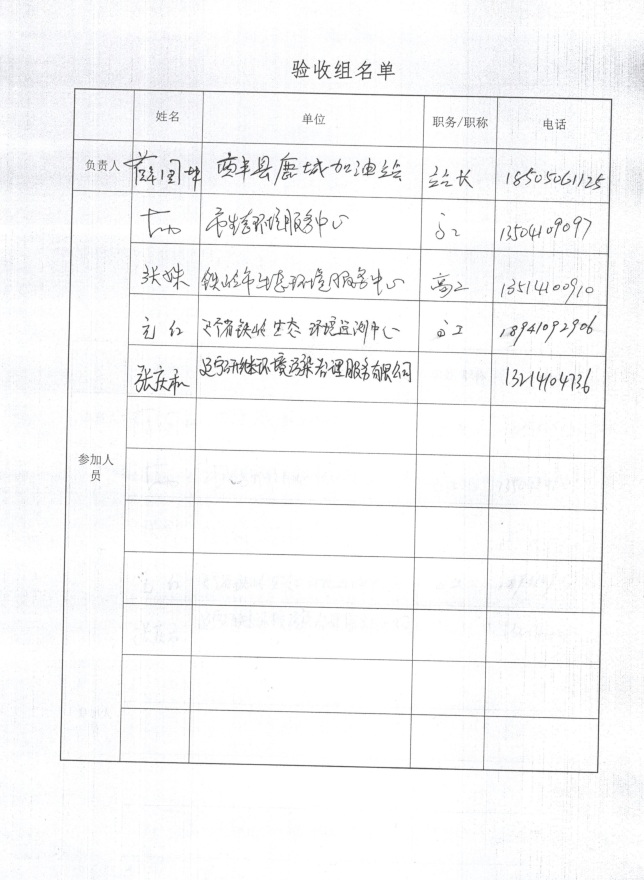 验收组名单
姓名 单位 职务/职称 电话
负责人 薛国坤 西丰县鹿城加油站 站长 18505061125
市生态环境服务中心 高工 13504109097
张姝 铁岭市生态环境服务中心 高工 13514100910
红 省铁岭生态环境监测中心 高工 18941092906
张庆和 辽宁 环境污染治理服务有限公司 13214104736
参加人
员